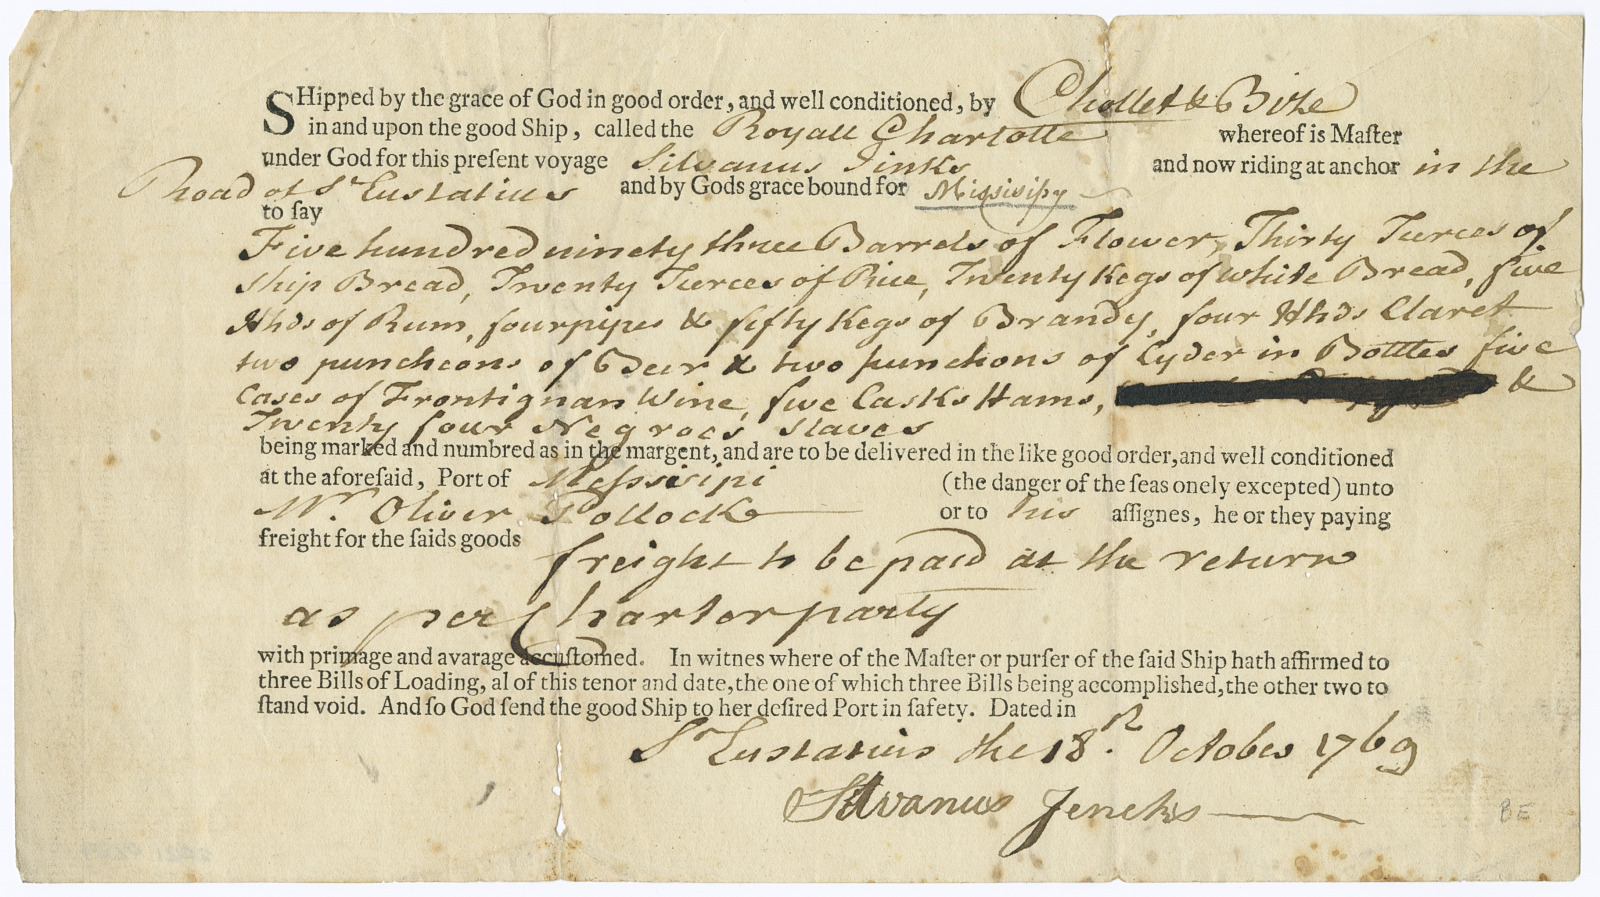 SHipped by the grace of God in good order, and well conditioned, by Chollet & Bize
in and upon the good Ship, called the Royall Charlotte whereof is Maſter
under God for this preſent voyage Silvanus Jinks and now riding at anchor in the
Road of St Eustatius and by Gods grace bound for Missisipy
to ſay
Five hundred ninety three Barrels of Flower, Thirty Tierces of
Ship Bread, Twenty Tierces of Rice, Twenty Kegs of white Bread, five
Hhds of Rum, four pipes & fifty Kegs of Brandy, four Hhds Claret
two puncheons of Beer & two punchons of Cyder in Bottles five
Cases of Frontignan Wine, five Casks Hams, &
Twenty four Negroes Slaves
being marked and numbred as in the margent, and are to be delivered in the like good order, and well conditioned
at the aforeſaid, Port of Messisipi (the danger of the ſeas onely excepted) unto
Mr. Oliver Pollock or to his aſſignes, he or they paying
freight for the ſaids goods
freight to be paid at the return
as per Charterparty
with primage and avarage accuſtomed. In witnes where of the Maſter or purſer of the ſaid Ship hath affirmed to
three Bills of Loading, al of this tenor and date, the one of which three Bills being accomplished, the other two to
ſtand void. And ſo God ſend the good Ship to her deſired Port in ſafety. Dated in
St Eustatius the 18th October 1769
Silvanus Jencks
BE